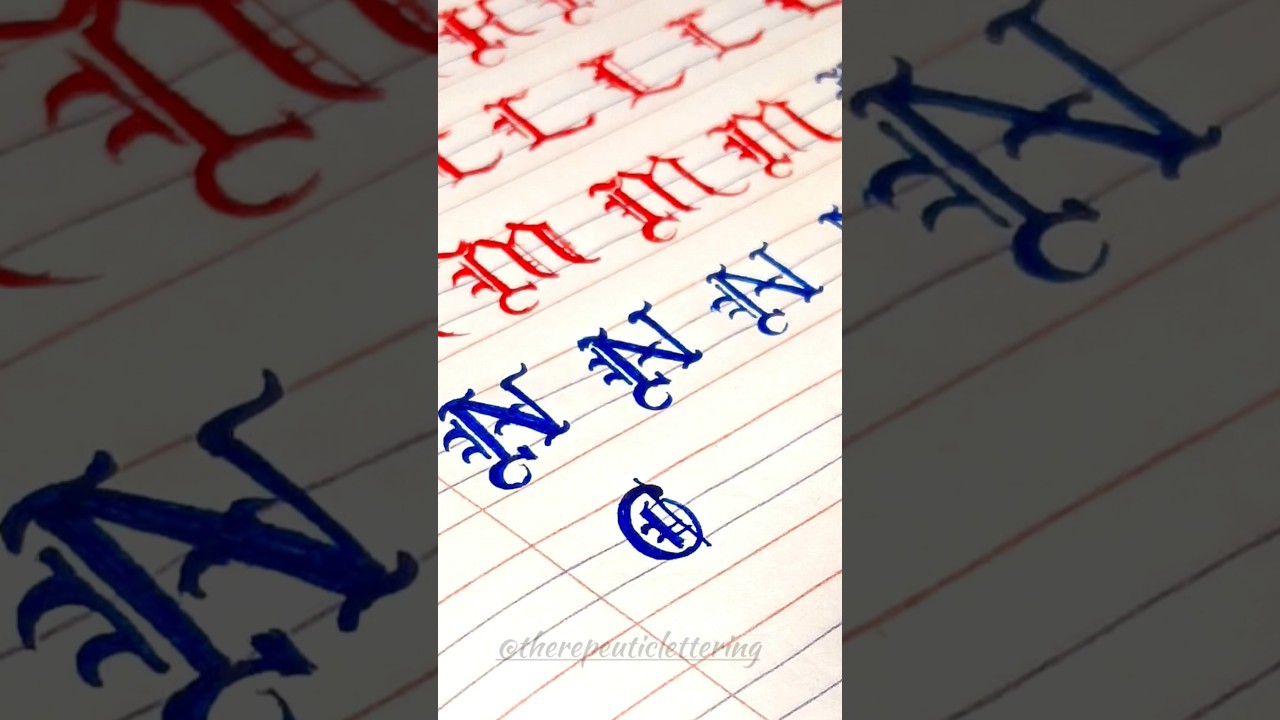 K
L L L L
M M M
N N N
O
@therepeuticlettering